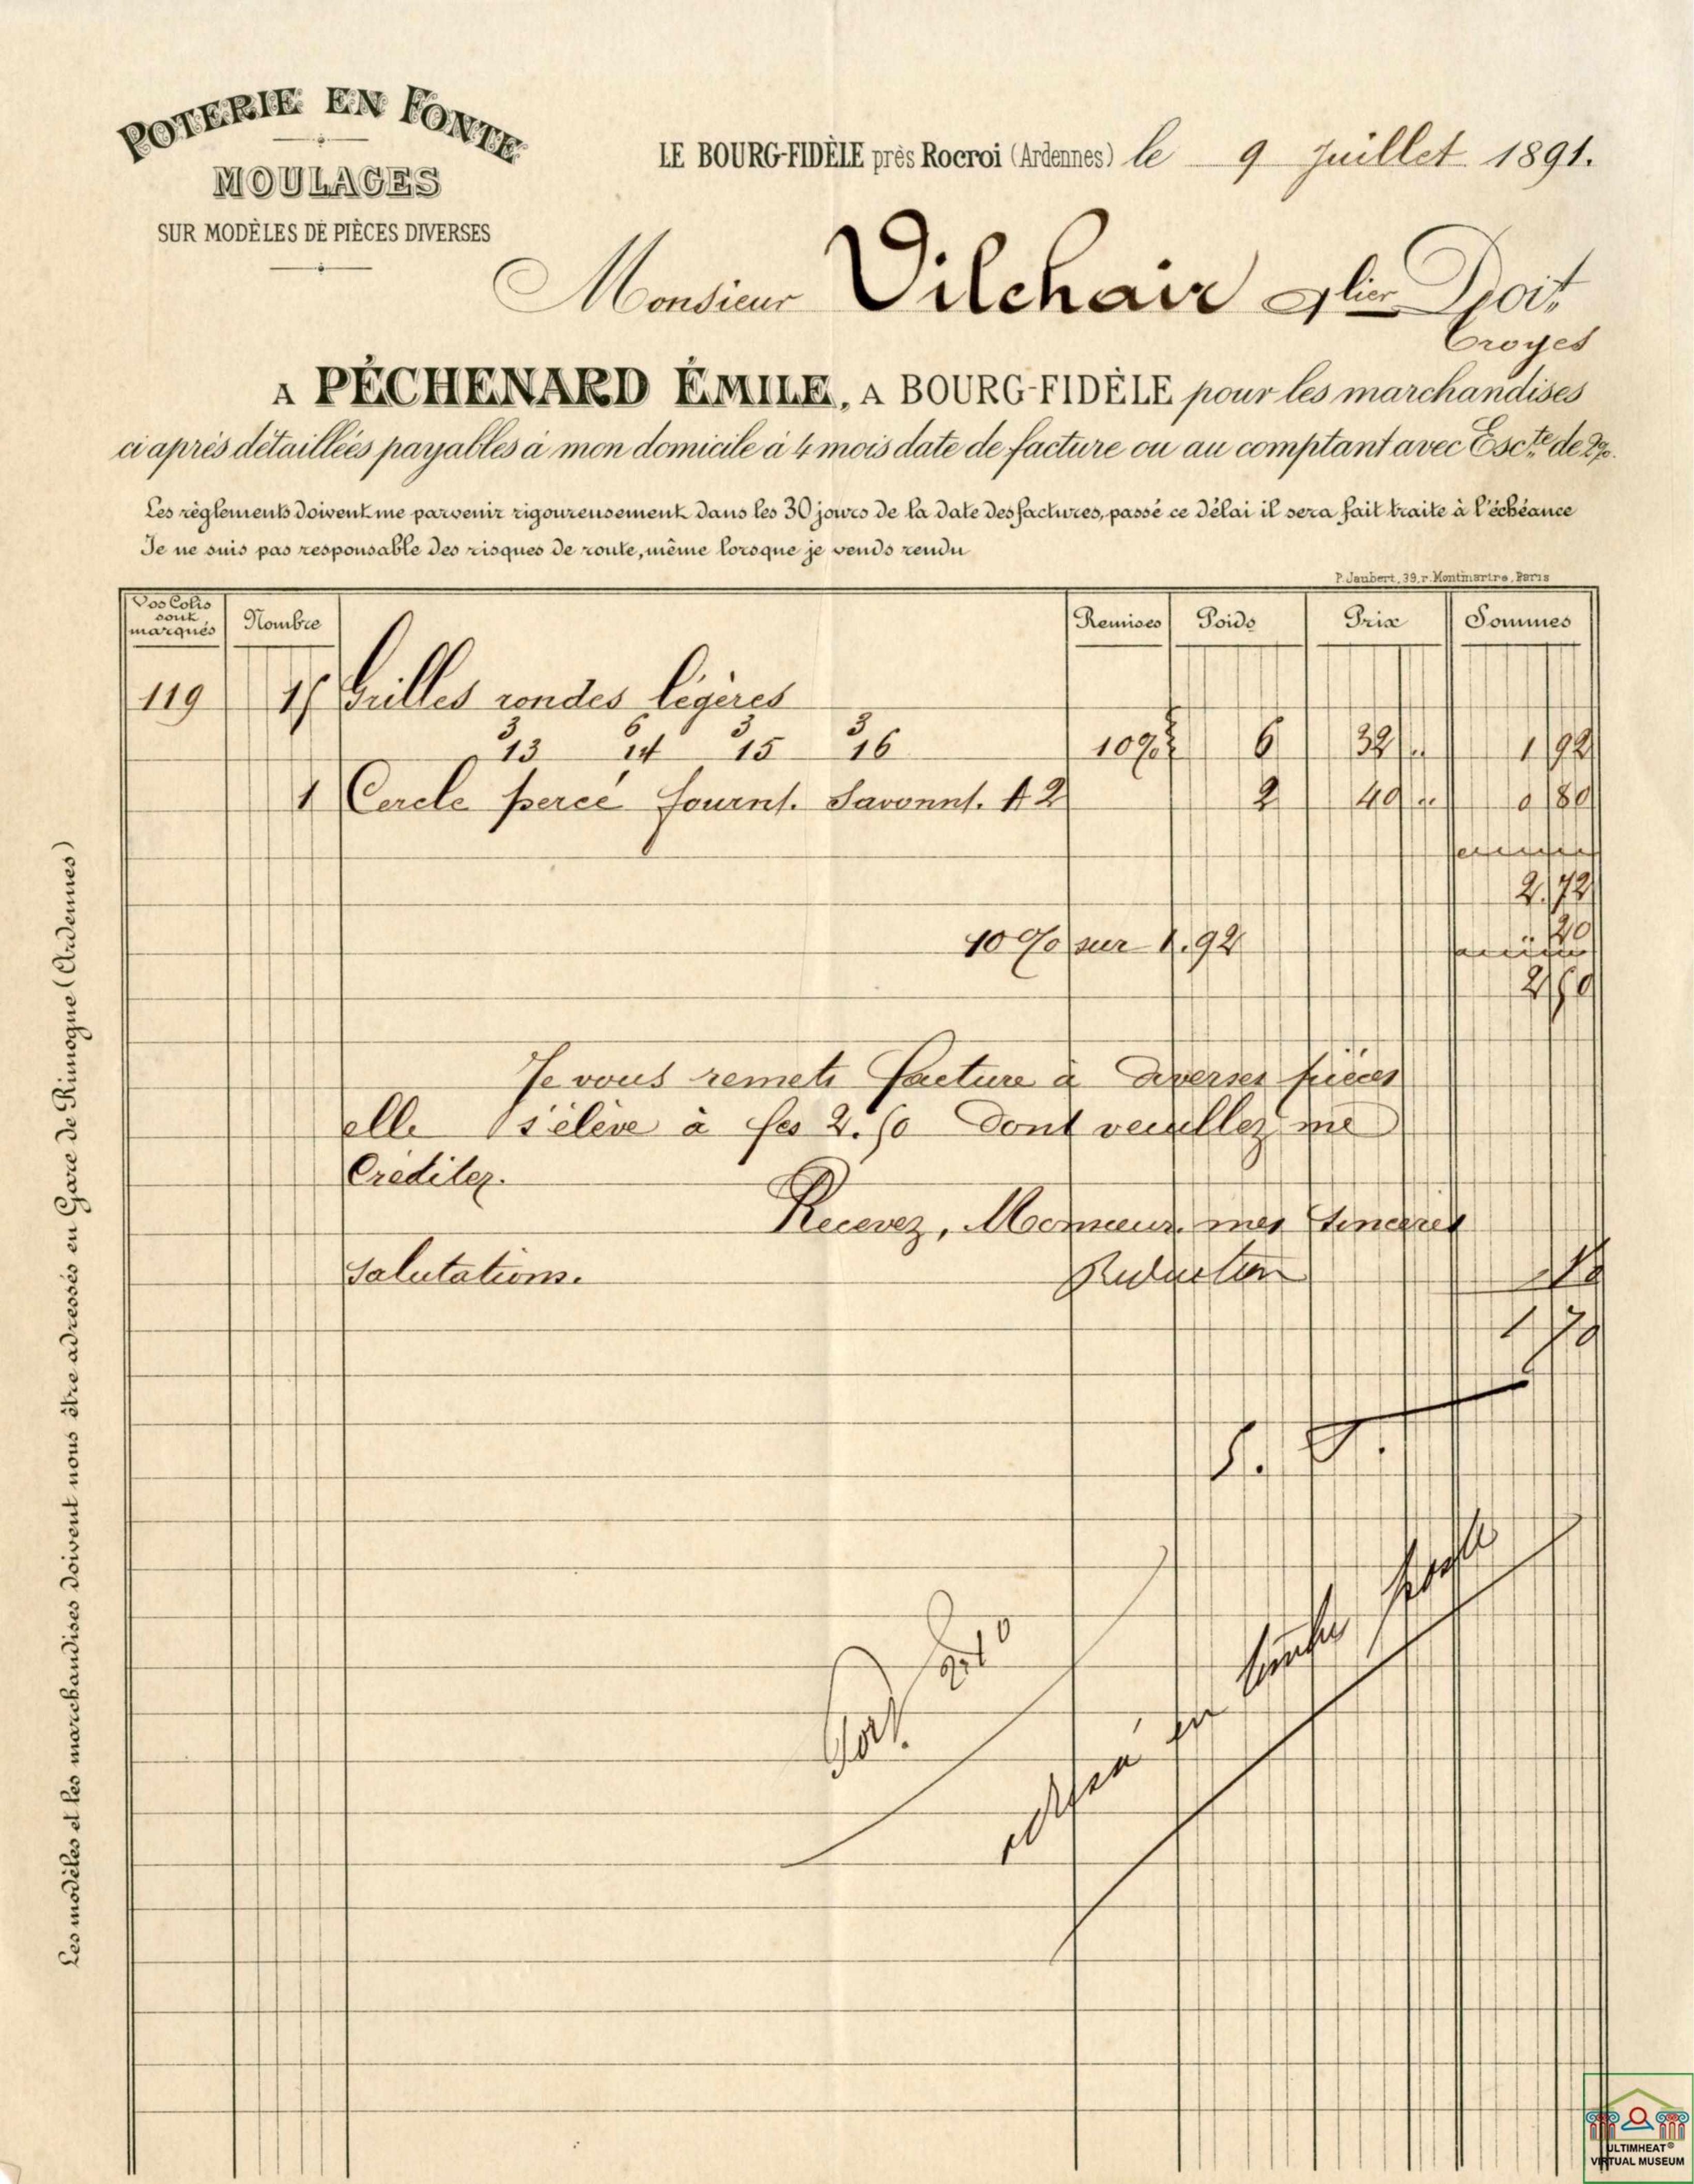 POTERIE EN FONTE
MOULAGES
SUR MODÈLES DE PIÈCES DIVERSES
LE BOURG-FIDÈLE près Rocroi (Ardennes) le 9 Juillet 1891.
Monsieur Vilchair Doit
Troyes
A PÉCHENARD ÉMILE, A BOURG-FIDÈLE pour les marchandises
ci après détaillées payables à mon domicile à 4 mois date de facture ou au comptant avec Escte de 2%.
Les règlements doivent me parvenir rigoureusement dans les 30 jours de la date des factures, passé ce délai il sera fait traite à l'échéance
Je ne suis pas responsable des risques de route, même lorsque je vends rendu
P. Jaubert, 39, r. Montmartre, Paris
Vos Colis sont marqués Nombre Remises Poids Prix Sommes
119 15 Grilles rondes légères
3 6 3 3
13 14 15 16 10% 6 32 " 1 92
1 Cercle percé fournt. Savonnt. A 2 2 40 " 0 80
2.72
10% sur 1.92 " 20
2 50
Je vous remets facture à diverses pièces
elle s'élève à fcs 2.50 dont veuillez me
Créditer.
Recevez, Monsieur, mes sincères
Salutations. Réduction
1 70
Port
en timbres poste
Les modèles et les marchandises doivent nous être adressés en Gare de Rimogne (Ardennes)
ULTIMHEAT®
VIRTUAL MUSEUM